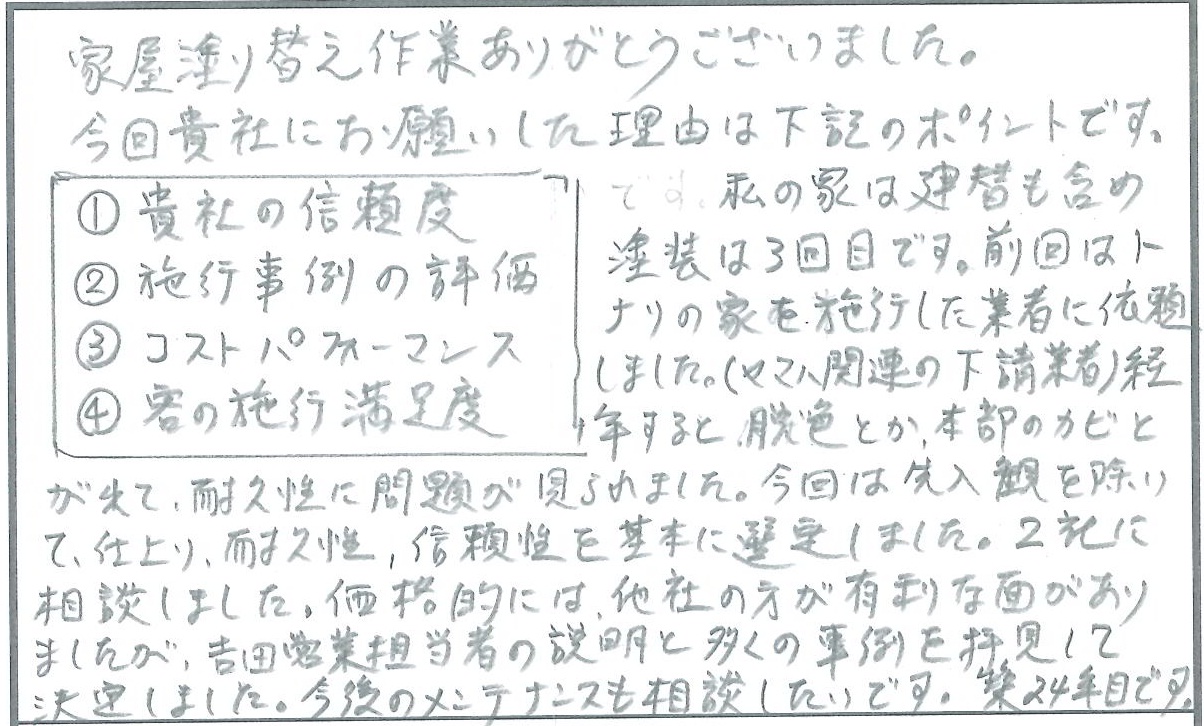 家屋塗り替え作業ありがとうございました。
今回貴社にお願いした理由は下記のポイントです。
① 貴社の信頼度
② 施行事例の評価
③ コストパフォーマンス
④ 客の施行満足度
です。私の家は建替も含め
塗装は3回目です。前回はト
ナリの家を施行した業者に依頼
しました。(ヤマハ関連の下請業者)経
年すると脱色とか、本部のカビと
が出て、耐久性に問題が見られました。今回は先入観を除い
て、仕上り、耐久性,信頼性を基本に選定しました。2社に
相談しました。価格的には、他社の方が有利な面があり
ましたが、吉田営業担当者の説明と多くの事例を拝見して
決定しました。今後のメンテナンスも相談したいです。築24年目です。